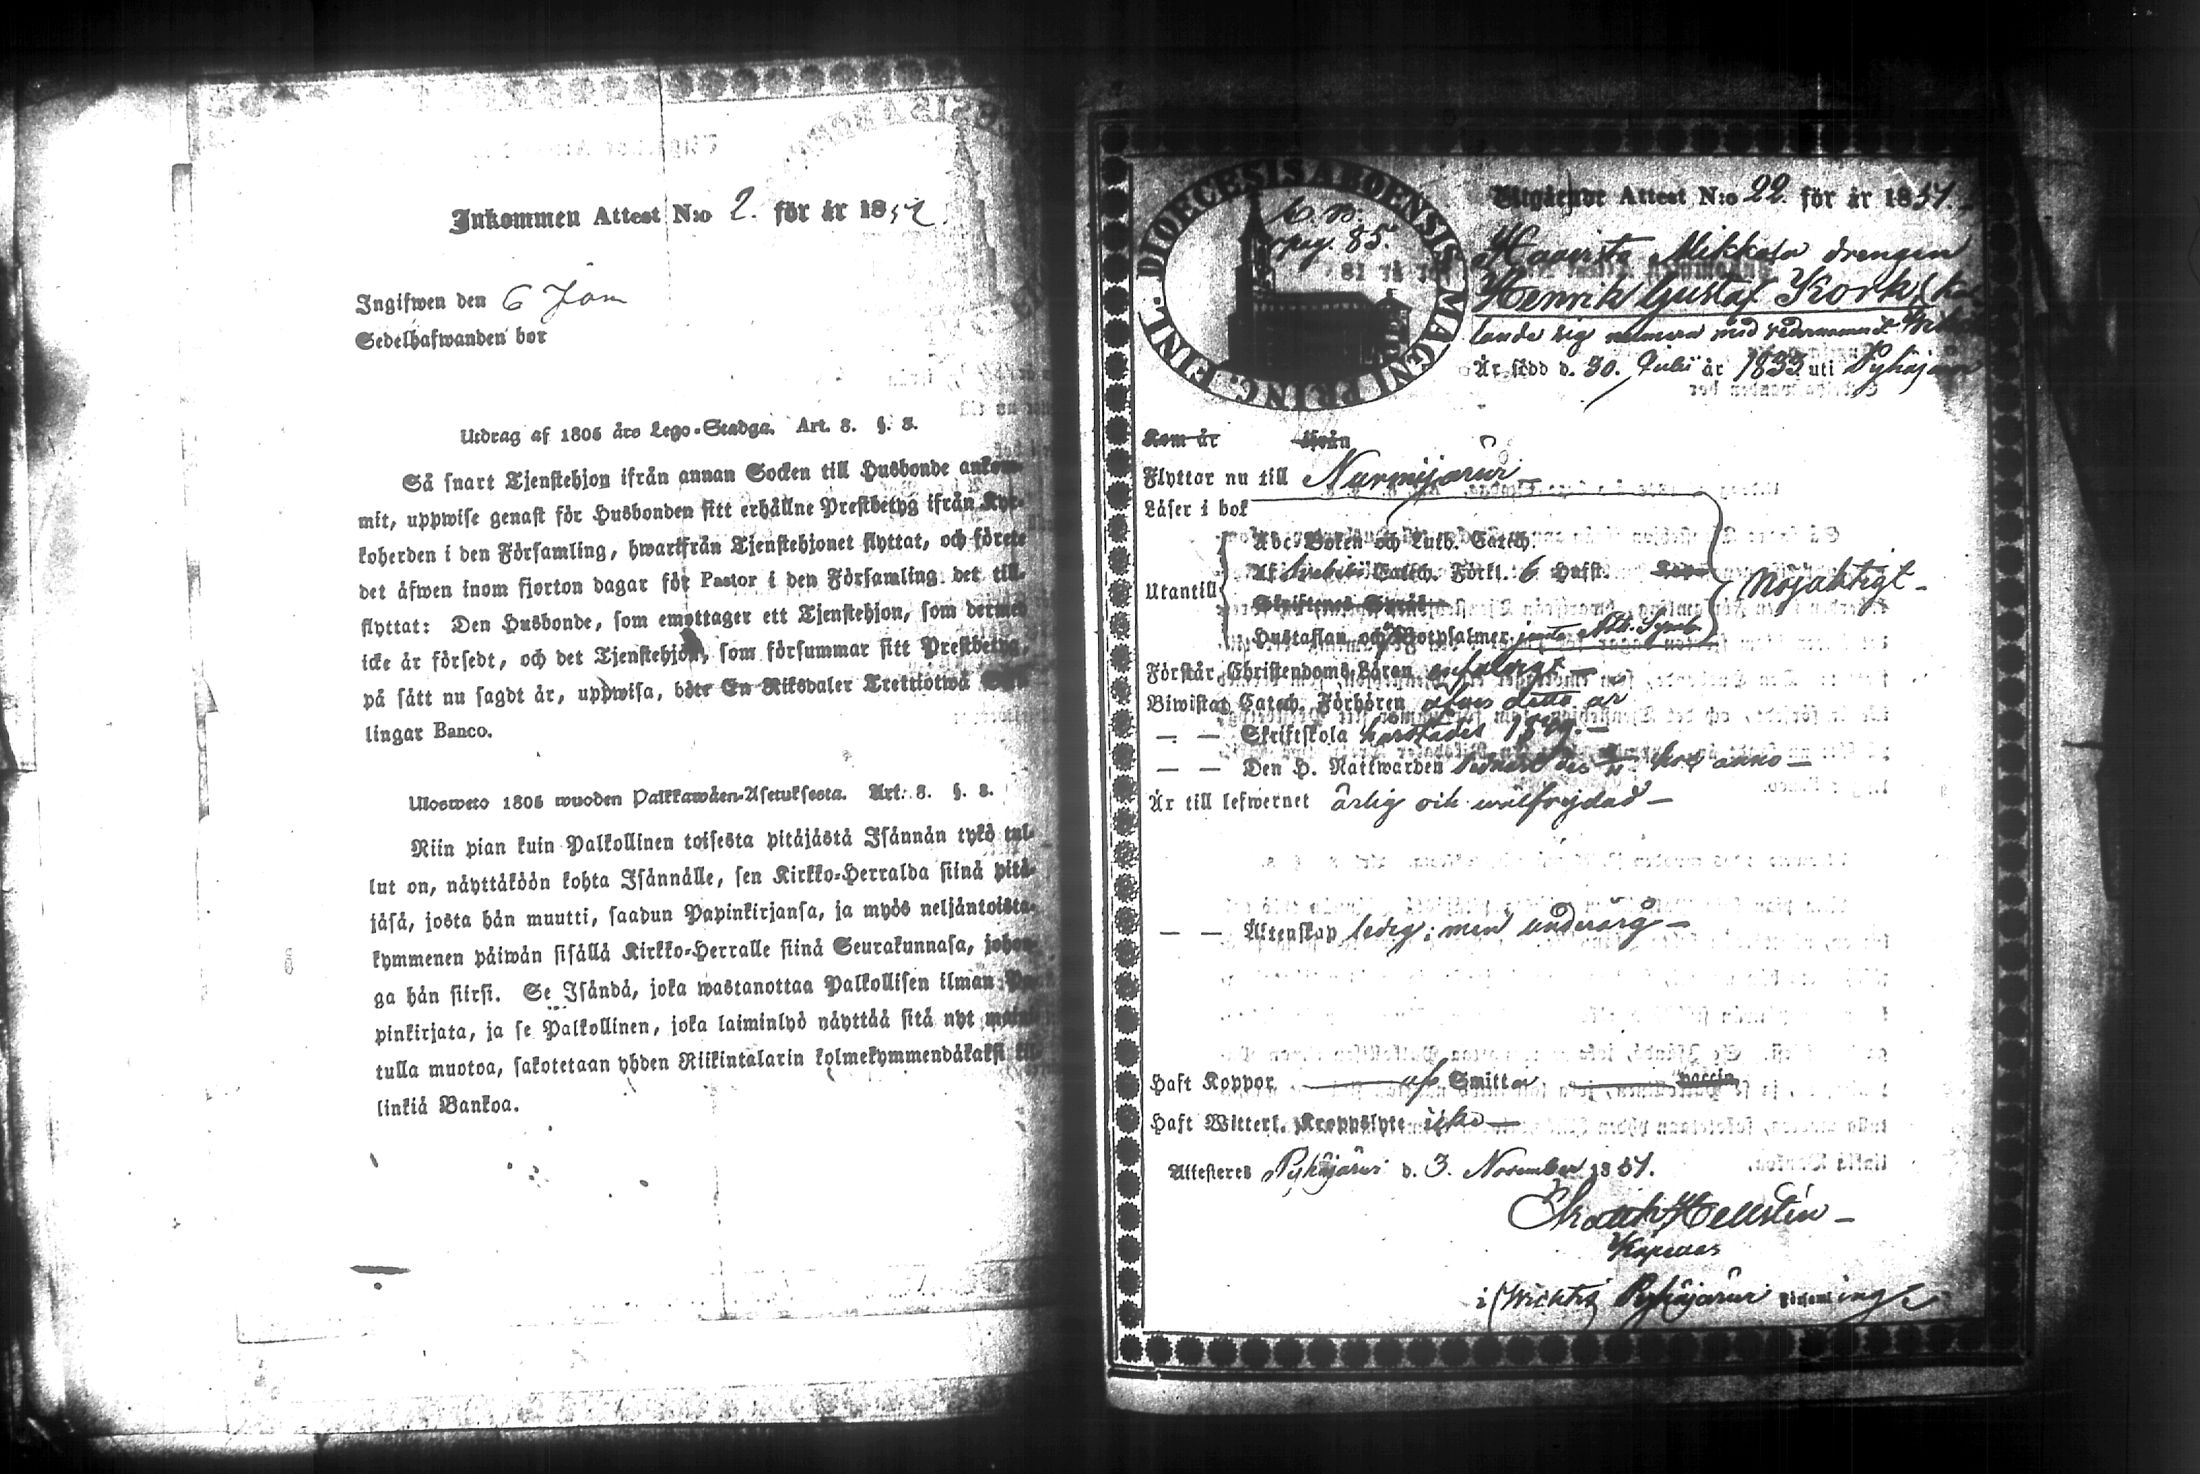 Inkommen Attest N:o 2. för år 1852.
Ingifwen den 6 Jan
Sedelhafwanden bor
Utdrag af 1805 års Lego-Stadga. Art. 8. §. 8.
Så snart Tjenstehjon ifrån annan Socken till Husbonde ankom-
mit, uppwise genast för Husbonden sitt erhållne Prestbetyg ifrån Kyr-
koherden i den Församling, hwarifrån Tjenstehjonet flyttat, och förete
det äfwen inom fjorton dagar för Pastor i den Församling det till-
flyttat: Den Husbonde, som emottager ett Tjenstehjon, som dermed
icke är försedt, och det Tjenstehjon, som försummar sitt Prestbetyg,
på sätt nu sagdt är, uppwisa, böte En Riksdaler Trettiotwå
lingar Banco.
Ulosweto 1805 wuoden Palkkawäen-Asetuksesta. Art. 8. §. 8.
Niin pian kuin Palkollinen toisesta pitäjästä Isännän tykö tul-
lut on, näyttäköön kohta Isännälle, sen Kirkko-Herralda siinä pitä-
jäsä, josta hän muutti, saadun Papinkirjansa, ja myös neljäntoista-
kymmenen päiwän sisällä Kirkko-Herralle siinä Seurakunnasa, johon-
ga hän siirsi. Se Isändä, joka wastanottaa Palkollisen ilman Pa-
pinkirjata, ja se Palkollinen, joka laiminlyö näyttää sitä nyt mainit-
tulla muotoa, sakotetaan yhden Riikintalarin kolmekymmendäkaksi kil-
linkiä Bankoa.
DIOECESIS ABOENSIS MAGNI PRINC. FINL.
pag. 85.
Utgående Attest N:o 22. för år 1851.
Haavisto Mikkola drengen
Henrik Gustaf
sig numera med
Är född d. 30. Julii år 1833 uti Pyhäjärvi
Kom år ifrån
Flyttar nu till Nurmijärvi
Läser i bok
Abc-Boken och Luth. Catech.
Utantill Af Catech. Förkl. 6 Hufst. Nöjaktigt
Skriftenes Språk
Hustaflan och Botpsalmer jemte Ath. Symb.
Förstår Christendoms Läran enfaldigt
Biwistat Catech. Förhören äfven detta år
— — Skriftskola 1849.
— — Den H. Nattwarden anno
Är till lefwernet ärlig och wälfrejdad
— — Äktenskap ledig; men underårig
Haft Koppor af Smitta vaccin
Haft Witterl. Kroppslyte icke
Attesteres Pyhäjärvi d. 3. November 1851.
Hellstén
Kapellan
i Wichtis Pyhäjärvi Församling